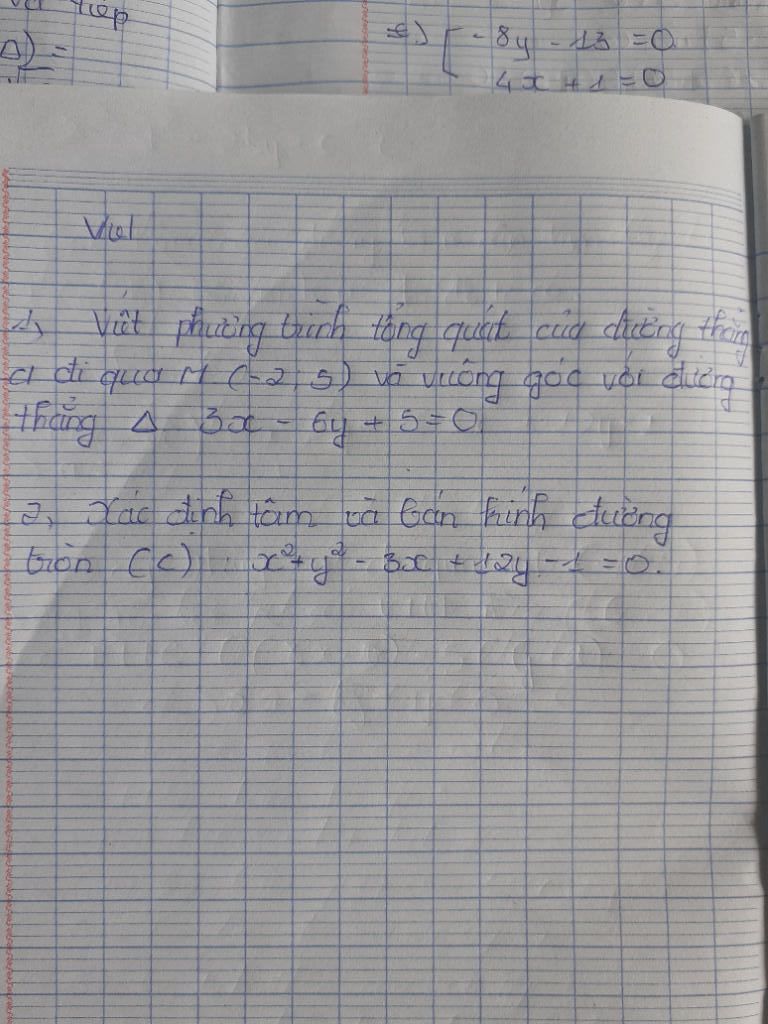 Δ) =
=) [ -8y - 13 = 0
4x + 1 = 0
1, Viết phương trình tổng quát của đường thẳng
d đi qua M (-2; 5) và vuông góc với đường
thẳng Δ 3x - 6y + 5 = 0
2, Xác định tâm và bán kính đường
tròn (C) : x² + y² - 3x + 12y - 1 = 0.